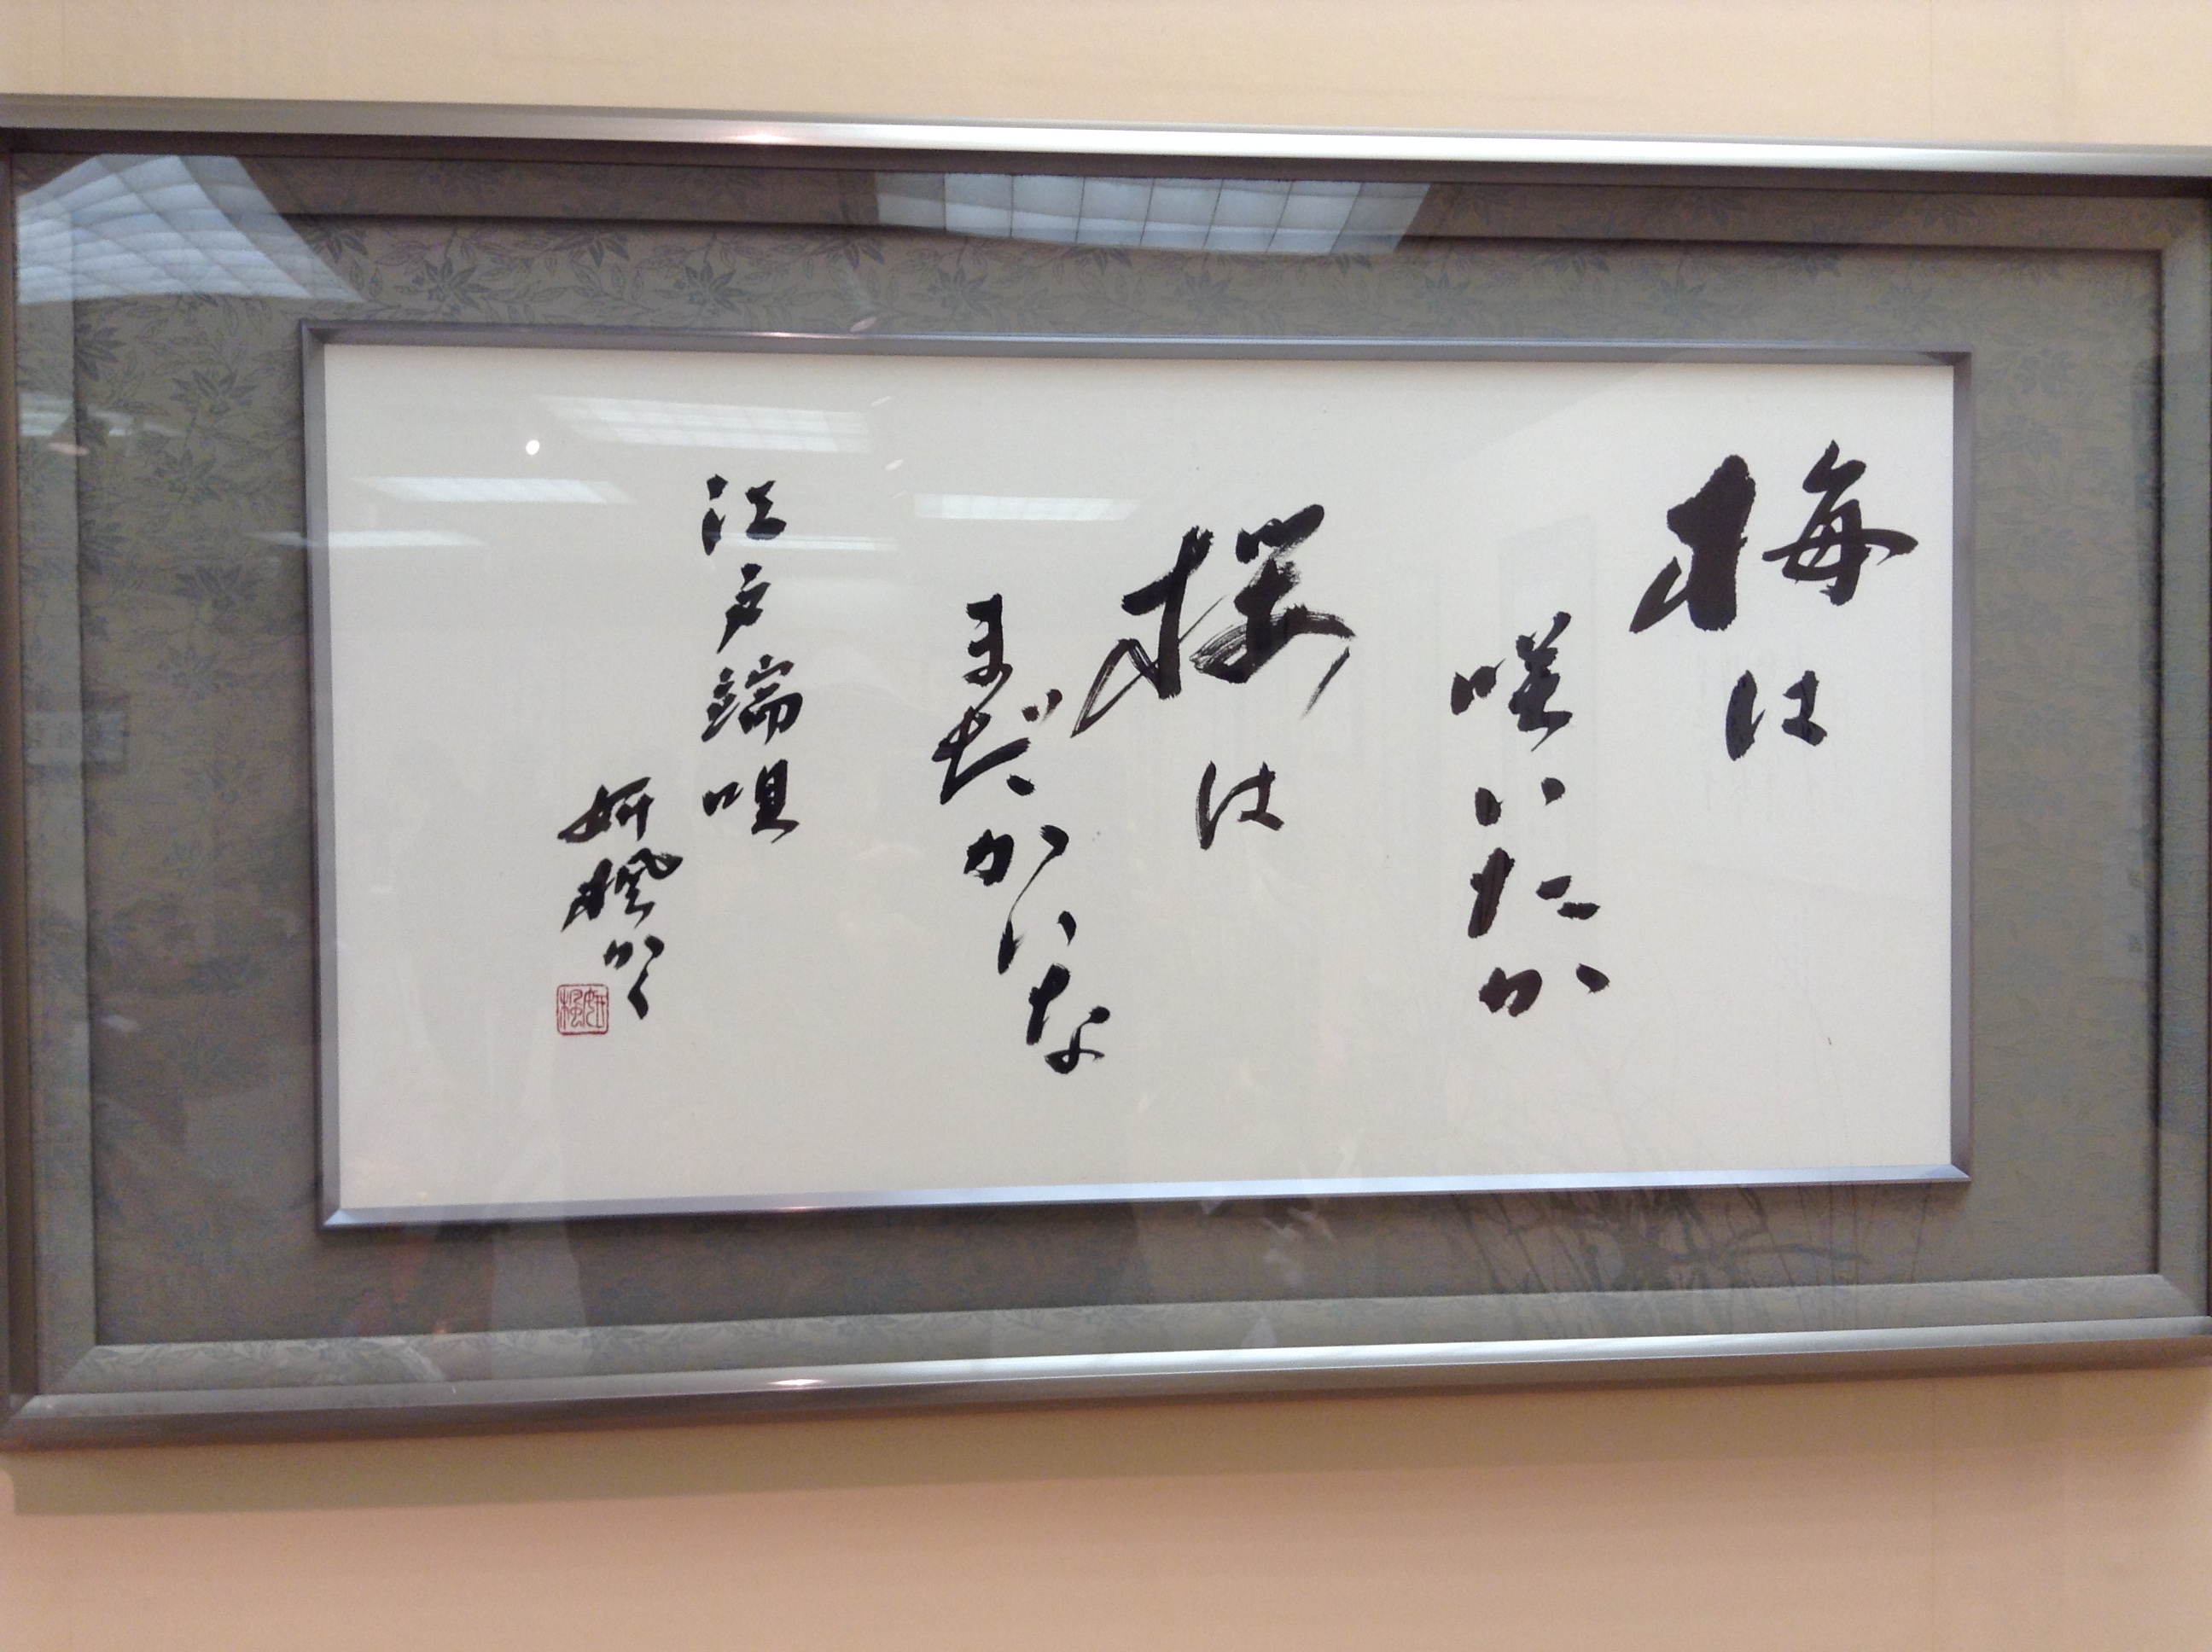 梅は
咲いたか
桜は
まだかいな
江戸端唄
妍楓かく
妍楓